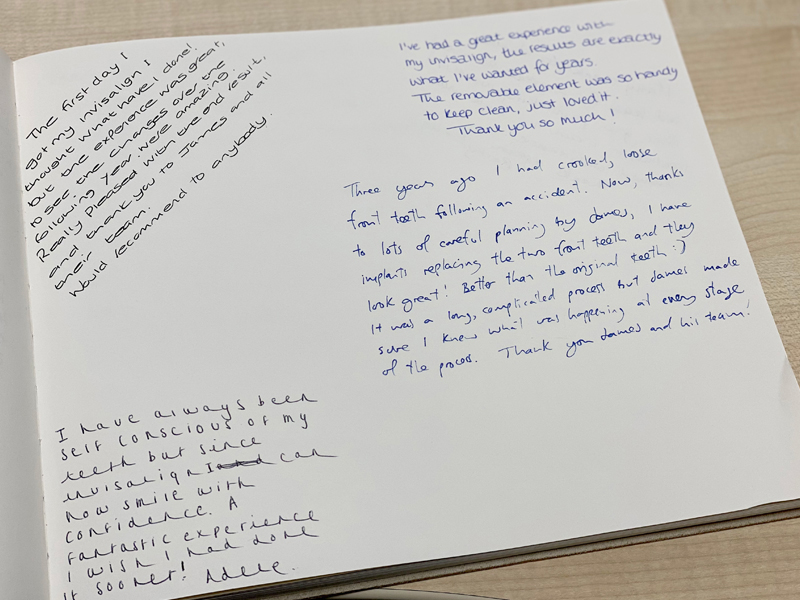 The first day I
got my invisalign I
thought what have I done!
but the experience was great,
to see the changes over the
following year were amazing.
Really pleased with the end result,
and thank you to James and all
their team.
Would recommend to anybody.
I've had a great experience with
my invisalign, the results are exactly
what I've wanted for years.
The removable element was so handy
to keep clean, just loved it.
Thank you so much!
Three years ago I had crooked, loose
front teeth following an accident. Now, thanks
to lots of careful planning by James, I have
implants replacing the two front teeth and they
look great! Better than the original teeth :)
It was a long, complicated process but James made
sure I knew what was happening at every stage
of the process. Thank you James and his team!
I have always been
self conscious of my
teeth but since
invisalign I can
now smile with
confidence. A
fantastic experience
I wish I had done
it sooner! Adele.